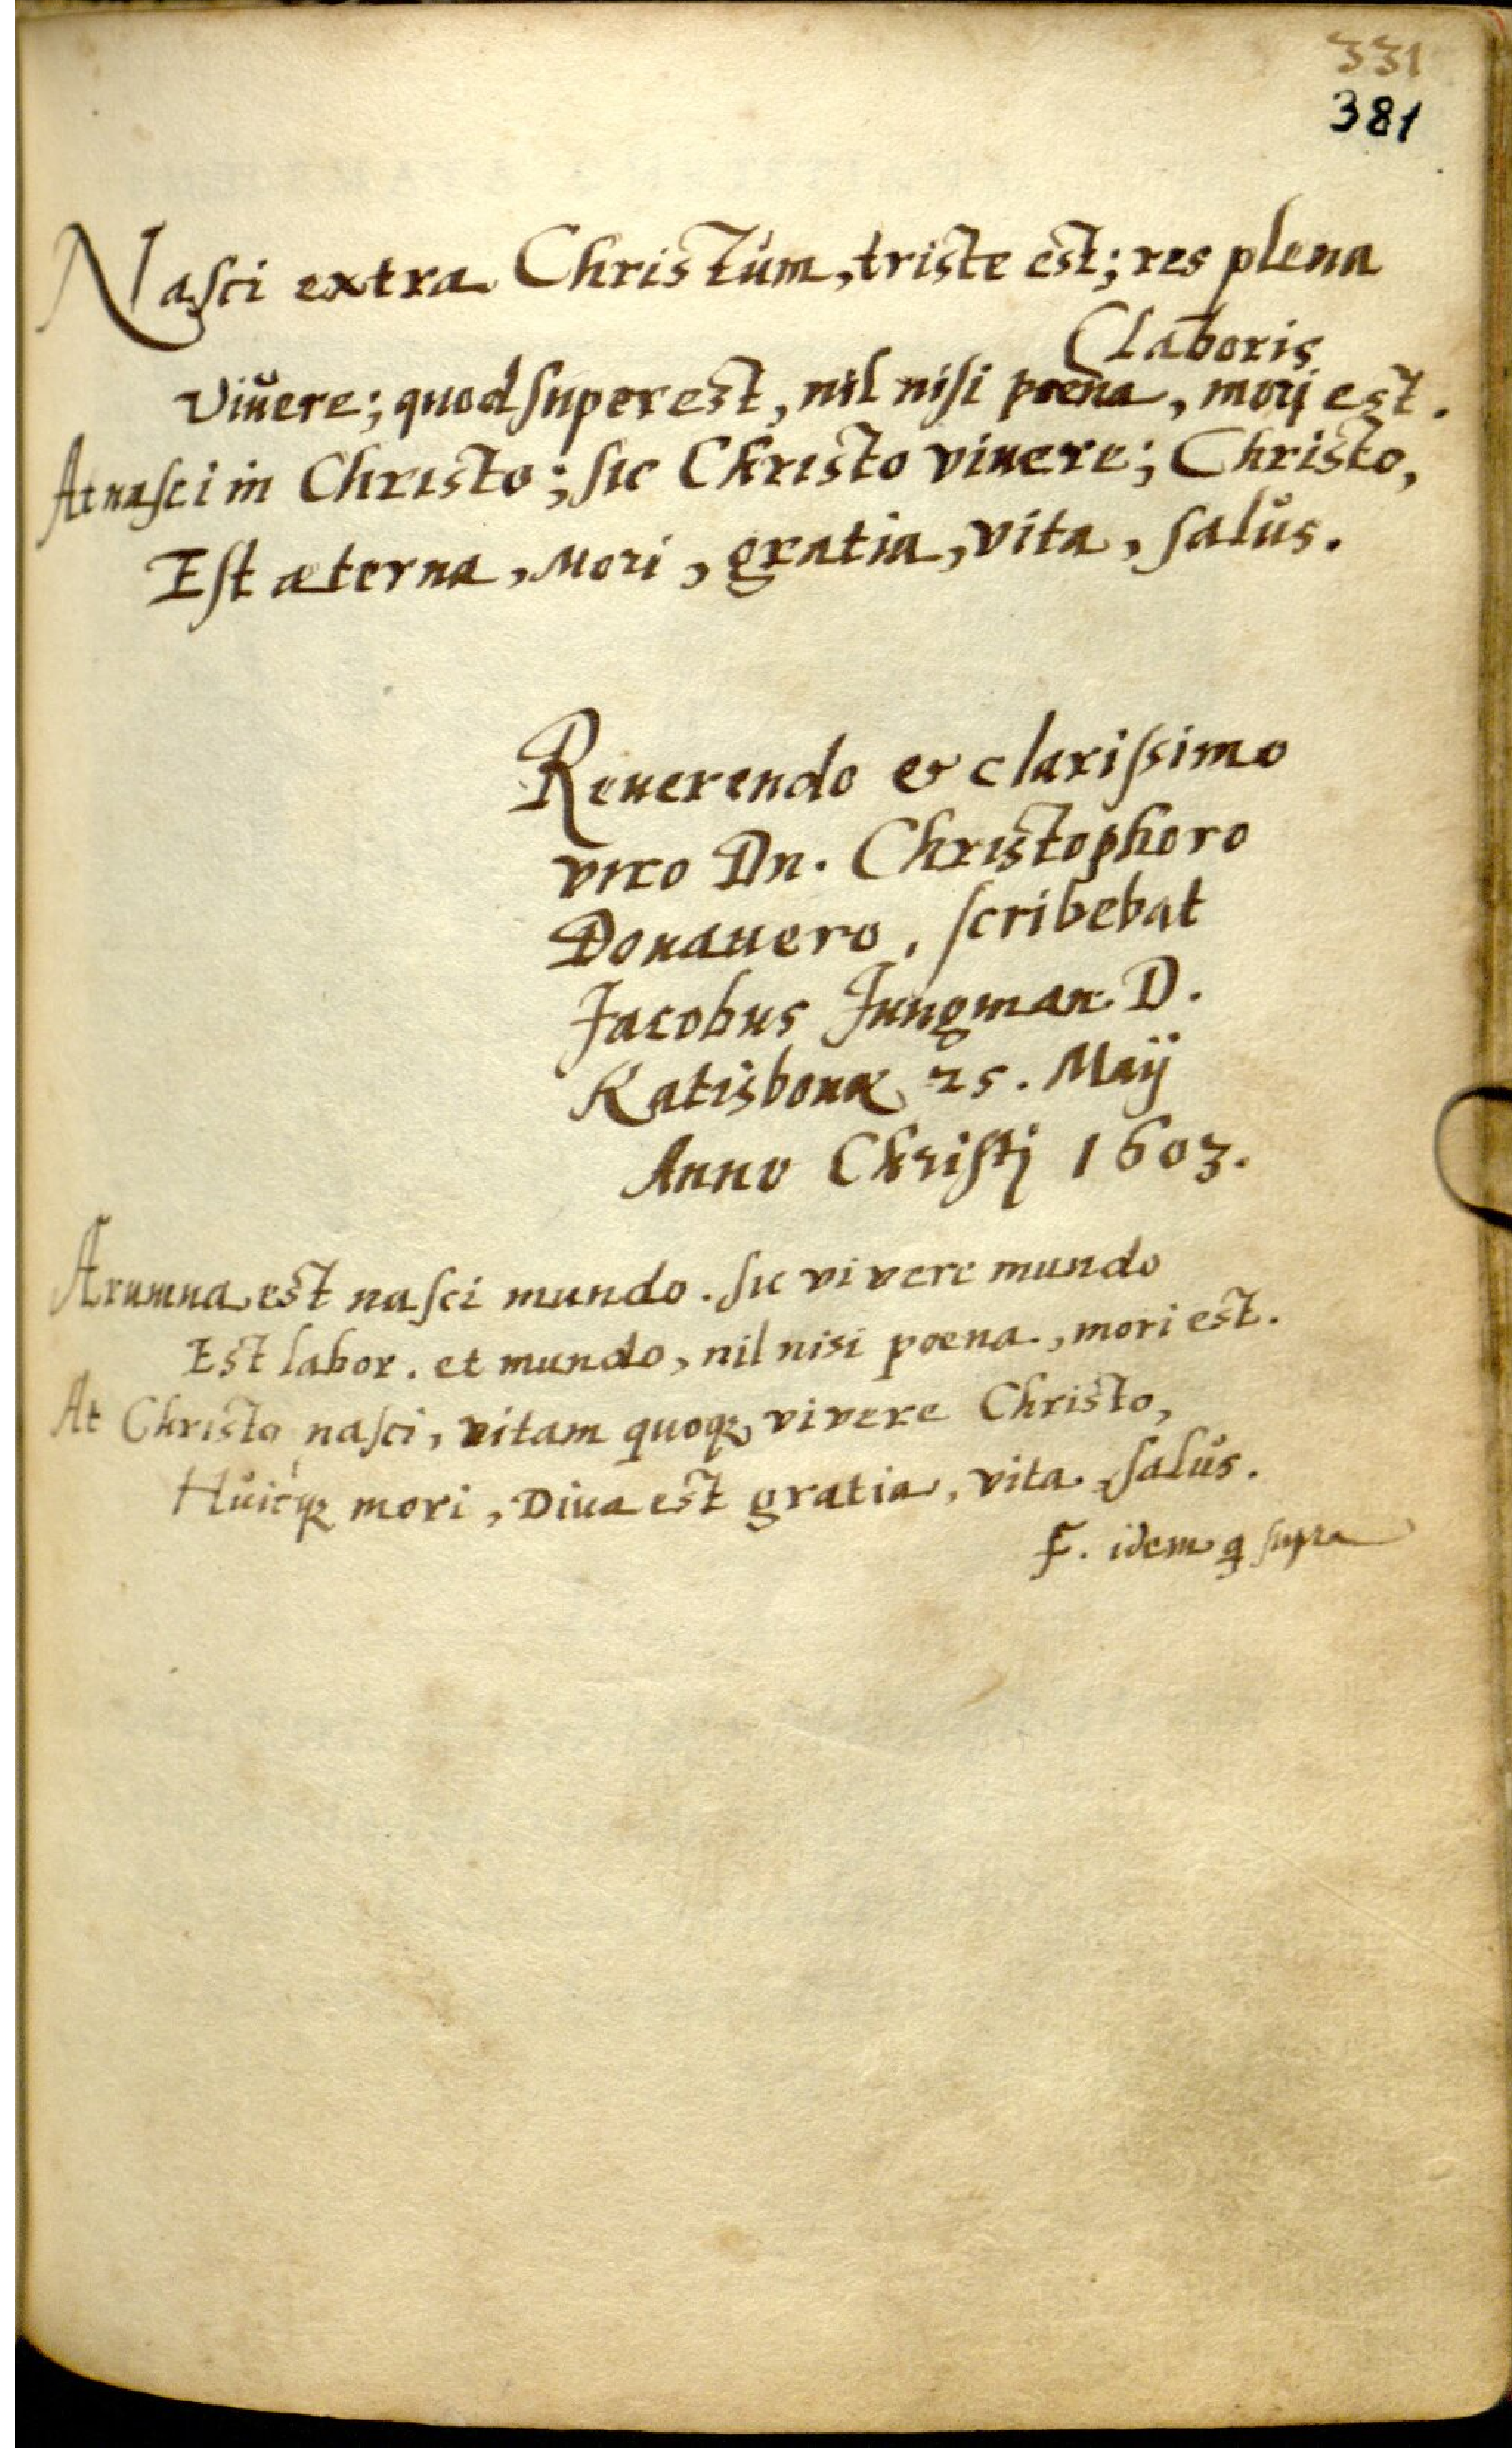 331
381
Nasci extra Christum, triste est; res plena
(Laboris
Viuere; quod superest, nil nisi poena, morj est.
At nasci in Christo; sic Christo viuere; Christo,
Est aeterna, Mori, gratia, vita, salus.
Reuerendo et clarissimo
viro Dn. Christophoro
Donauero, scribebat
Jacobus Jungman D.
Ratisbonæ 25. Maÿ
Anno Christj 1603.
Ærumna est nasci mundo. sic vivere mundo
Est labor. et mundo, nil nisi poena, mori est.
At Christo nasci, vitam quoqꝫ vivere Christo,
Huicqꝫ mori, Diua est gratia, vita, salus.
F. idem q supra